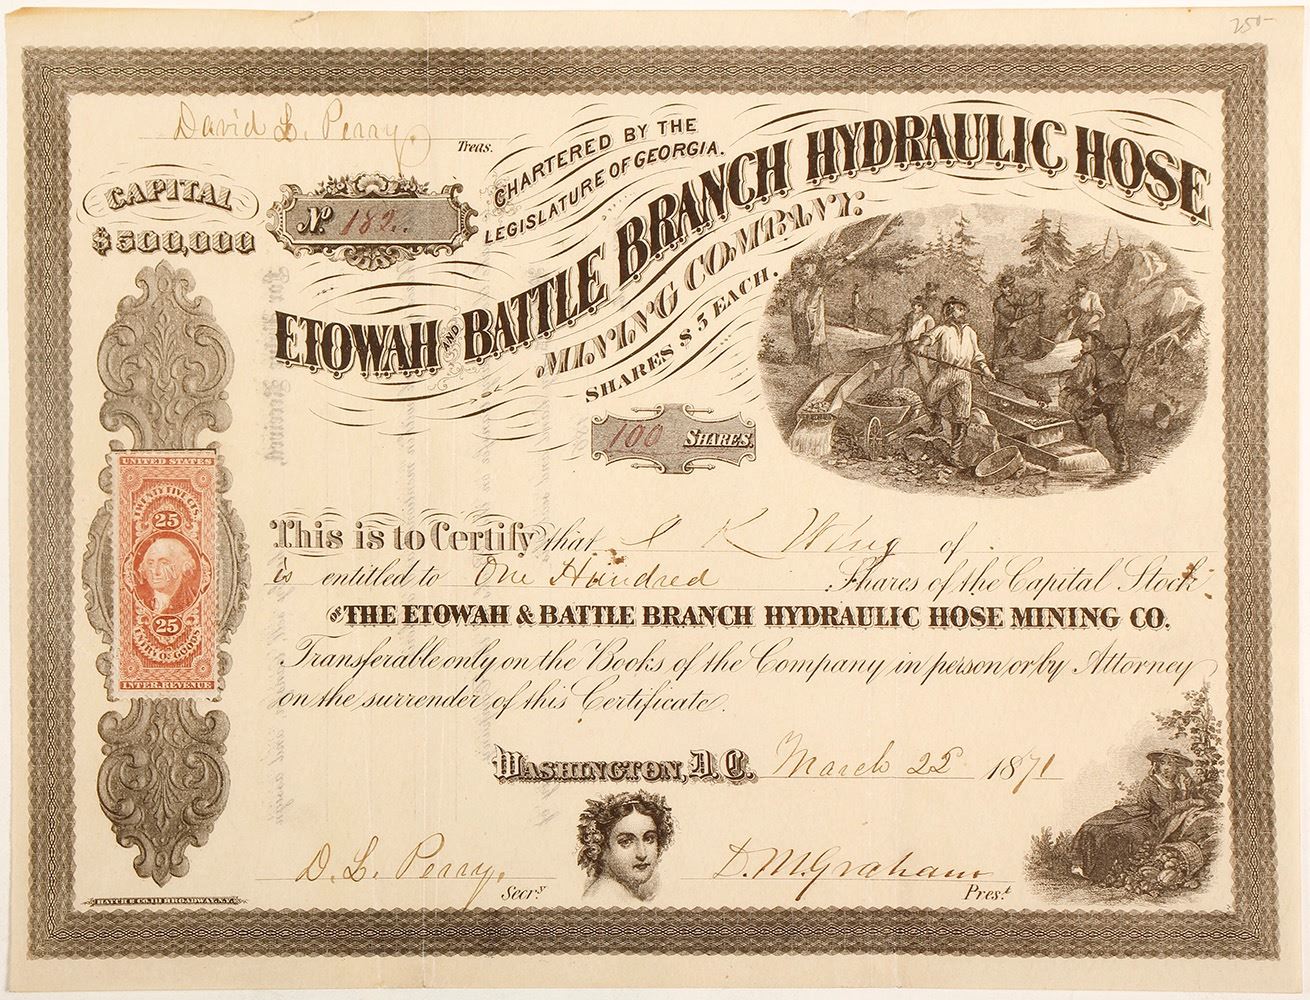 250-
David L. Perry
Treas.
CAPITAL
$500,000
No 182.
CHARTERED BY THE
LEGISLATURE OF GEORGIA.
ETOWAH AND BATTLE BRANCH HYDRAULIC HOSE
MINING COMPANY.
SHARES $5 EACH.
100 SHARES.
UNITED STATES
TWENTY FIVE CTS.
25
25
ENTRY OF GOODS
INTER. REVENUE
This is to Certify that I K Wing of
is entitled to One Hundred Shares of the Capital Stock
OF THE ETOWAH & BATTLE BRANCH HYDRAULIC HOSE MINING CO.
Transferable only on the Books of the Company in person or by Attorney
on the surrender of this Certificate.
WASHINGTON, D. C. March 22 1871
D. L. Perry,
Secry
D. M. Graham
Prest
HATCH & CO. 111 BROADWAY, N.Y.